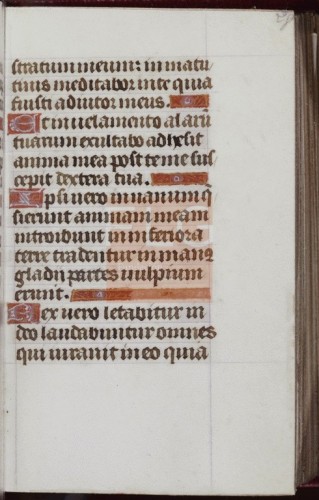 stratum meum: in matu
tinis meditabor in te quia
fuisti adiutor meus.
Et in uelamento alarū
tuarum exultabo adhesit
anima mea post te me sus
cepit dextera tua.
Ipsi uero in uanum q̄
sierunt animam meam
introibunt in inferiora
terre tradentur in manꝰ
gladii partes uulpium
erunt.
Rex uero letabitur in
deo laudabuntur omnes
qui iurant in eo quia